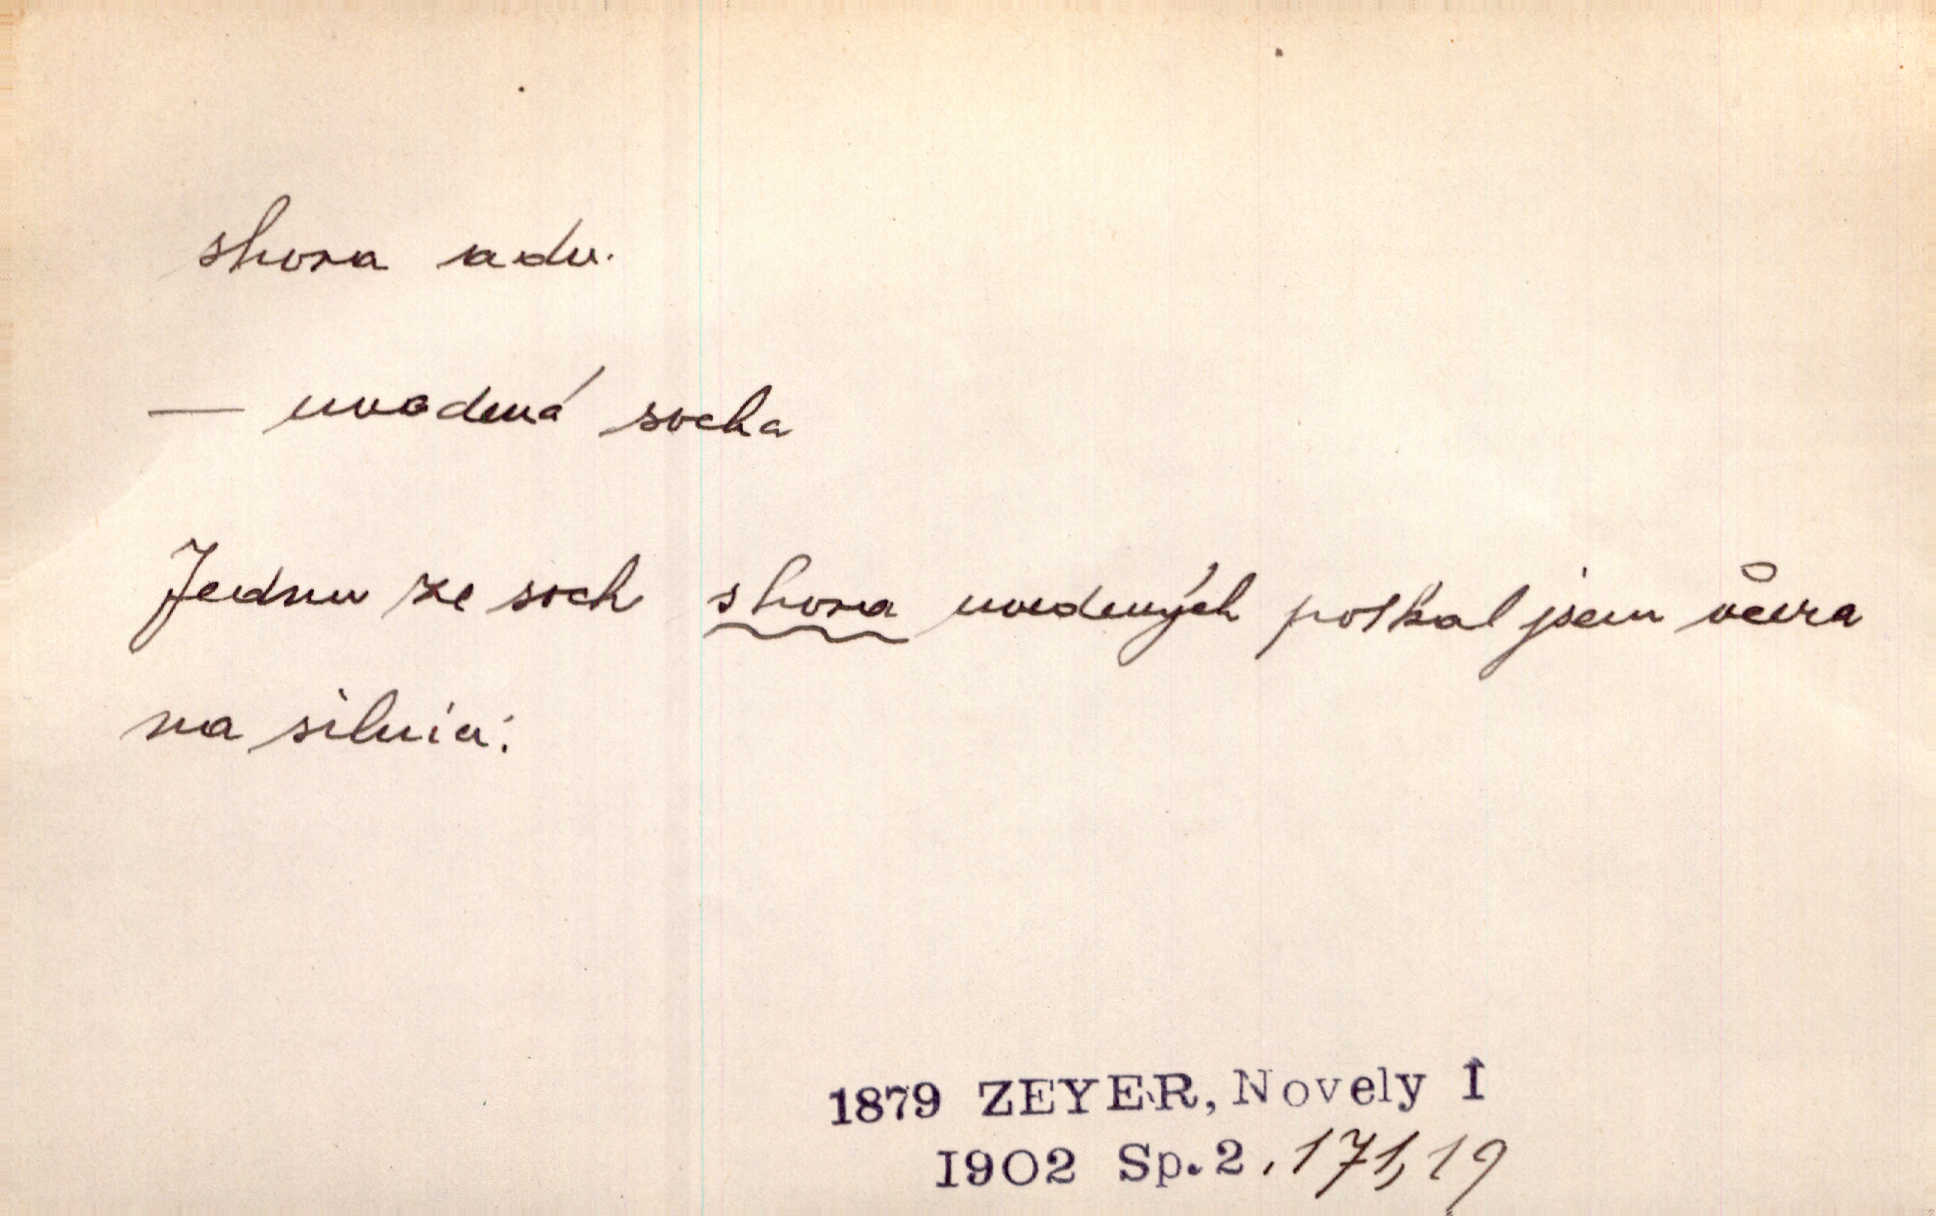 shora adv.
— uvedená socha
Jednu ze soch shora uvedených potkal jsem včera
na silnici:
1879 ZEYER, Novely I
1902 Sp.2, 171,19